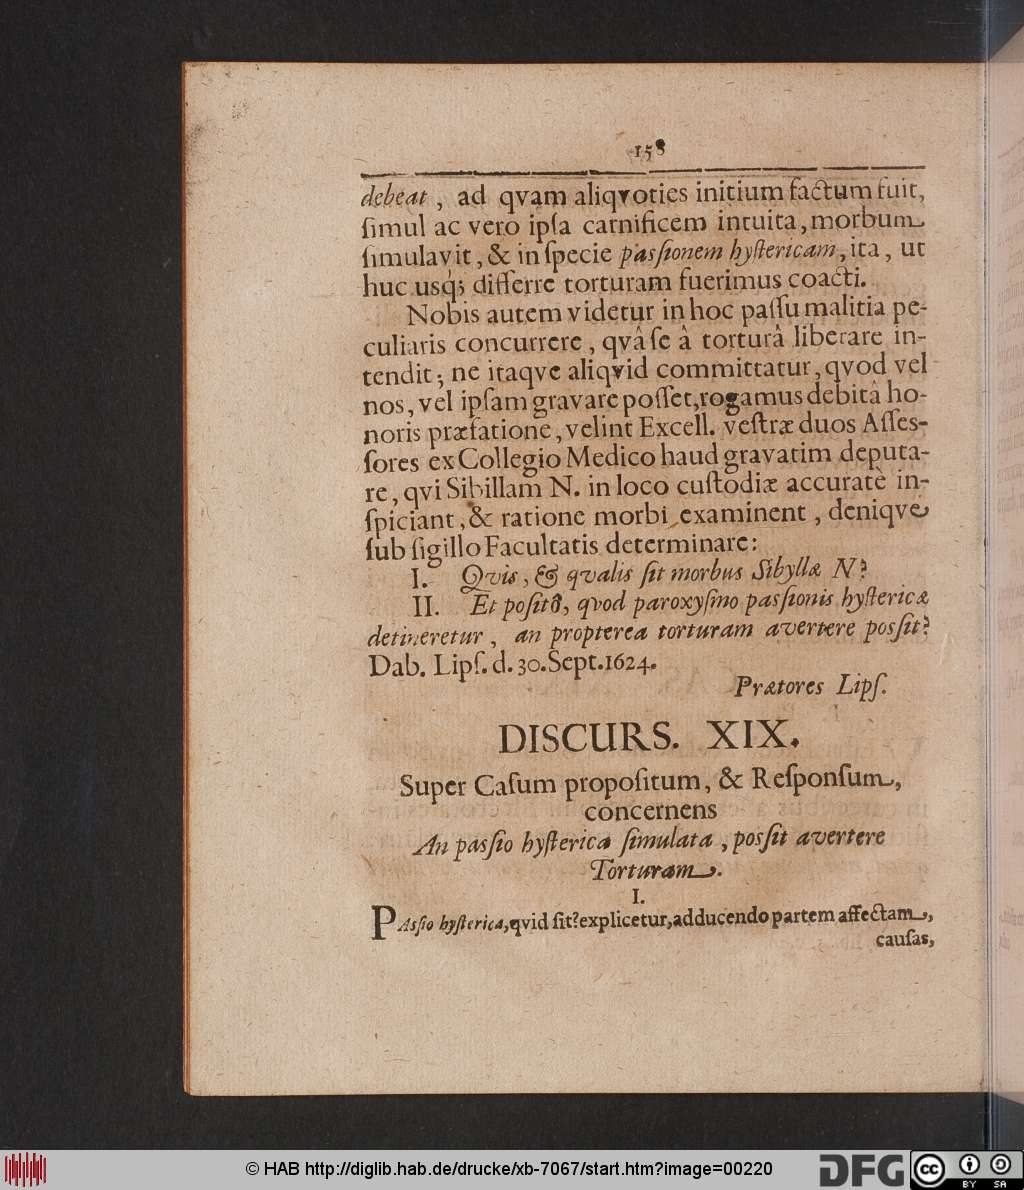 158
debeat, ad qvam aliqvoties initium factum fuit,
ſimul ac vero ipſa carnificem intuita, morbum
ſimulavit, & in ſpecie paſſionem hyſtericam, ita, ut
huc usq; differre torturam fuerimus coacti.
Nobis autem videtur in hoc paſſu malitia pe-
culiaris concurrere, qvâ ſe â torturâ liberare in-
tendit; ne itaqve aliqvid committatur, qvod vel
nos, vel ipſam gravare poſſet, rogamus debitâ ho-
noris præfatione, velint Excell. veſtræ duos Aſſeſ-
ſores ex Collegio Medico haud gravatim deputa-
re, qvi Sibillam N. in loco cuſtodiæ accuratè in-
ſpiciant, & ratione morbi examinent, deniqve
ſub ſigillo Facultatis determinare:
I. Qvis, & qvalis ſit morbus Sibyllæ N?
II. Et poſitô, qvod paroxyſmo paſſionis hyſtericæ
detineretur, an propterea torturam avertere poſſit?
Dab. Lipſ. d. 30. Sept. 1624.
Prætores Lipſ.
DISCURS. XIX.
Super Caſum propoſitum, & Reſponſum,
concernens
An paſſio hyſterica ſimulata, poſſit avertere
Torturam.
I.
PAſſio hyſterica, qvid ſit? explicetur, adducendo partem affectam,
cauſas,
© HAB http://diglib.hab.de/drucke/xb-7067/start.htm?image=00220
DFG
cc
BY SA